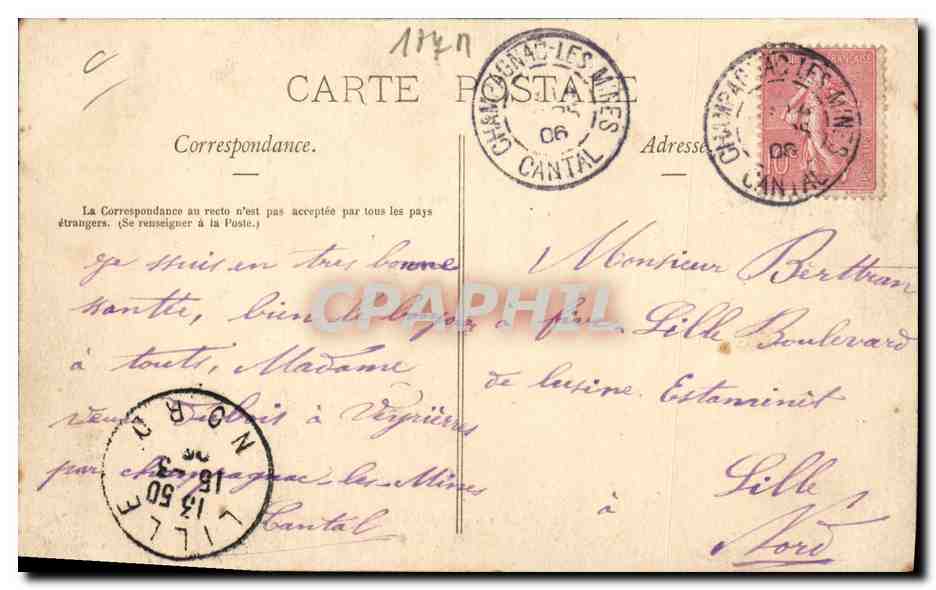 187 M
CARTE POSTALE
CHAMPAGNAC-LES-MINES
06
CANTAL
CHAMPAGNAC-LES-MINES
06
CANTAL
Correspondance.
Adresse
La Correspondance au recto n'est pas acceptée par tous les pays
étrangers. (Se renseigner à la Poste.)
je suis en tres bonne
santte, bien le bonjour
à touts, Madame
veuve Dubois à Veyrières
par champagnac-les-Mines
Cantal
Monsieur Berttran
à fives Lille Boulevard
de lusine Estaminèt
à Lille
Nord
CPAPHIL
LILLE NORD
13 50
15-3
06